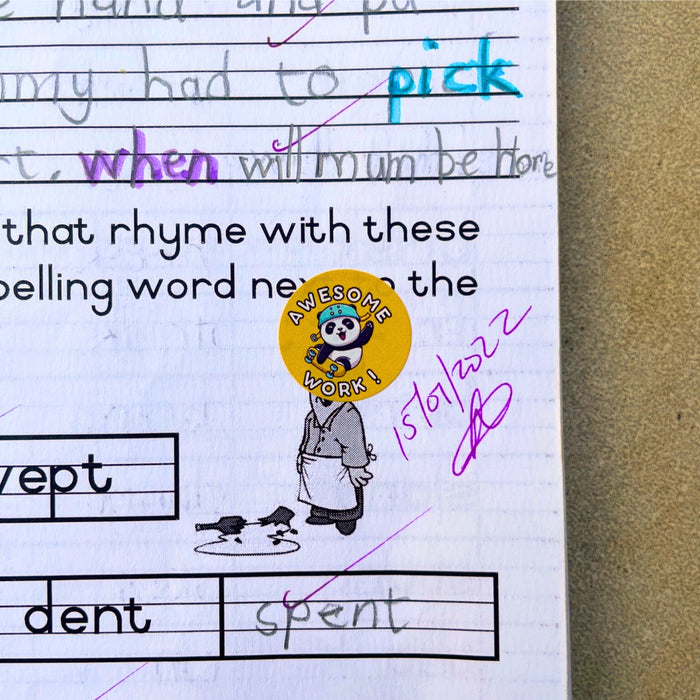 hand and pu
my had to pick
t. when will mum be Home
that rhyme with these
pelling word ne the
AWESOME
WORK!
15/01/2022
vept
dent spent